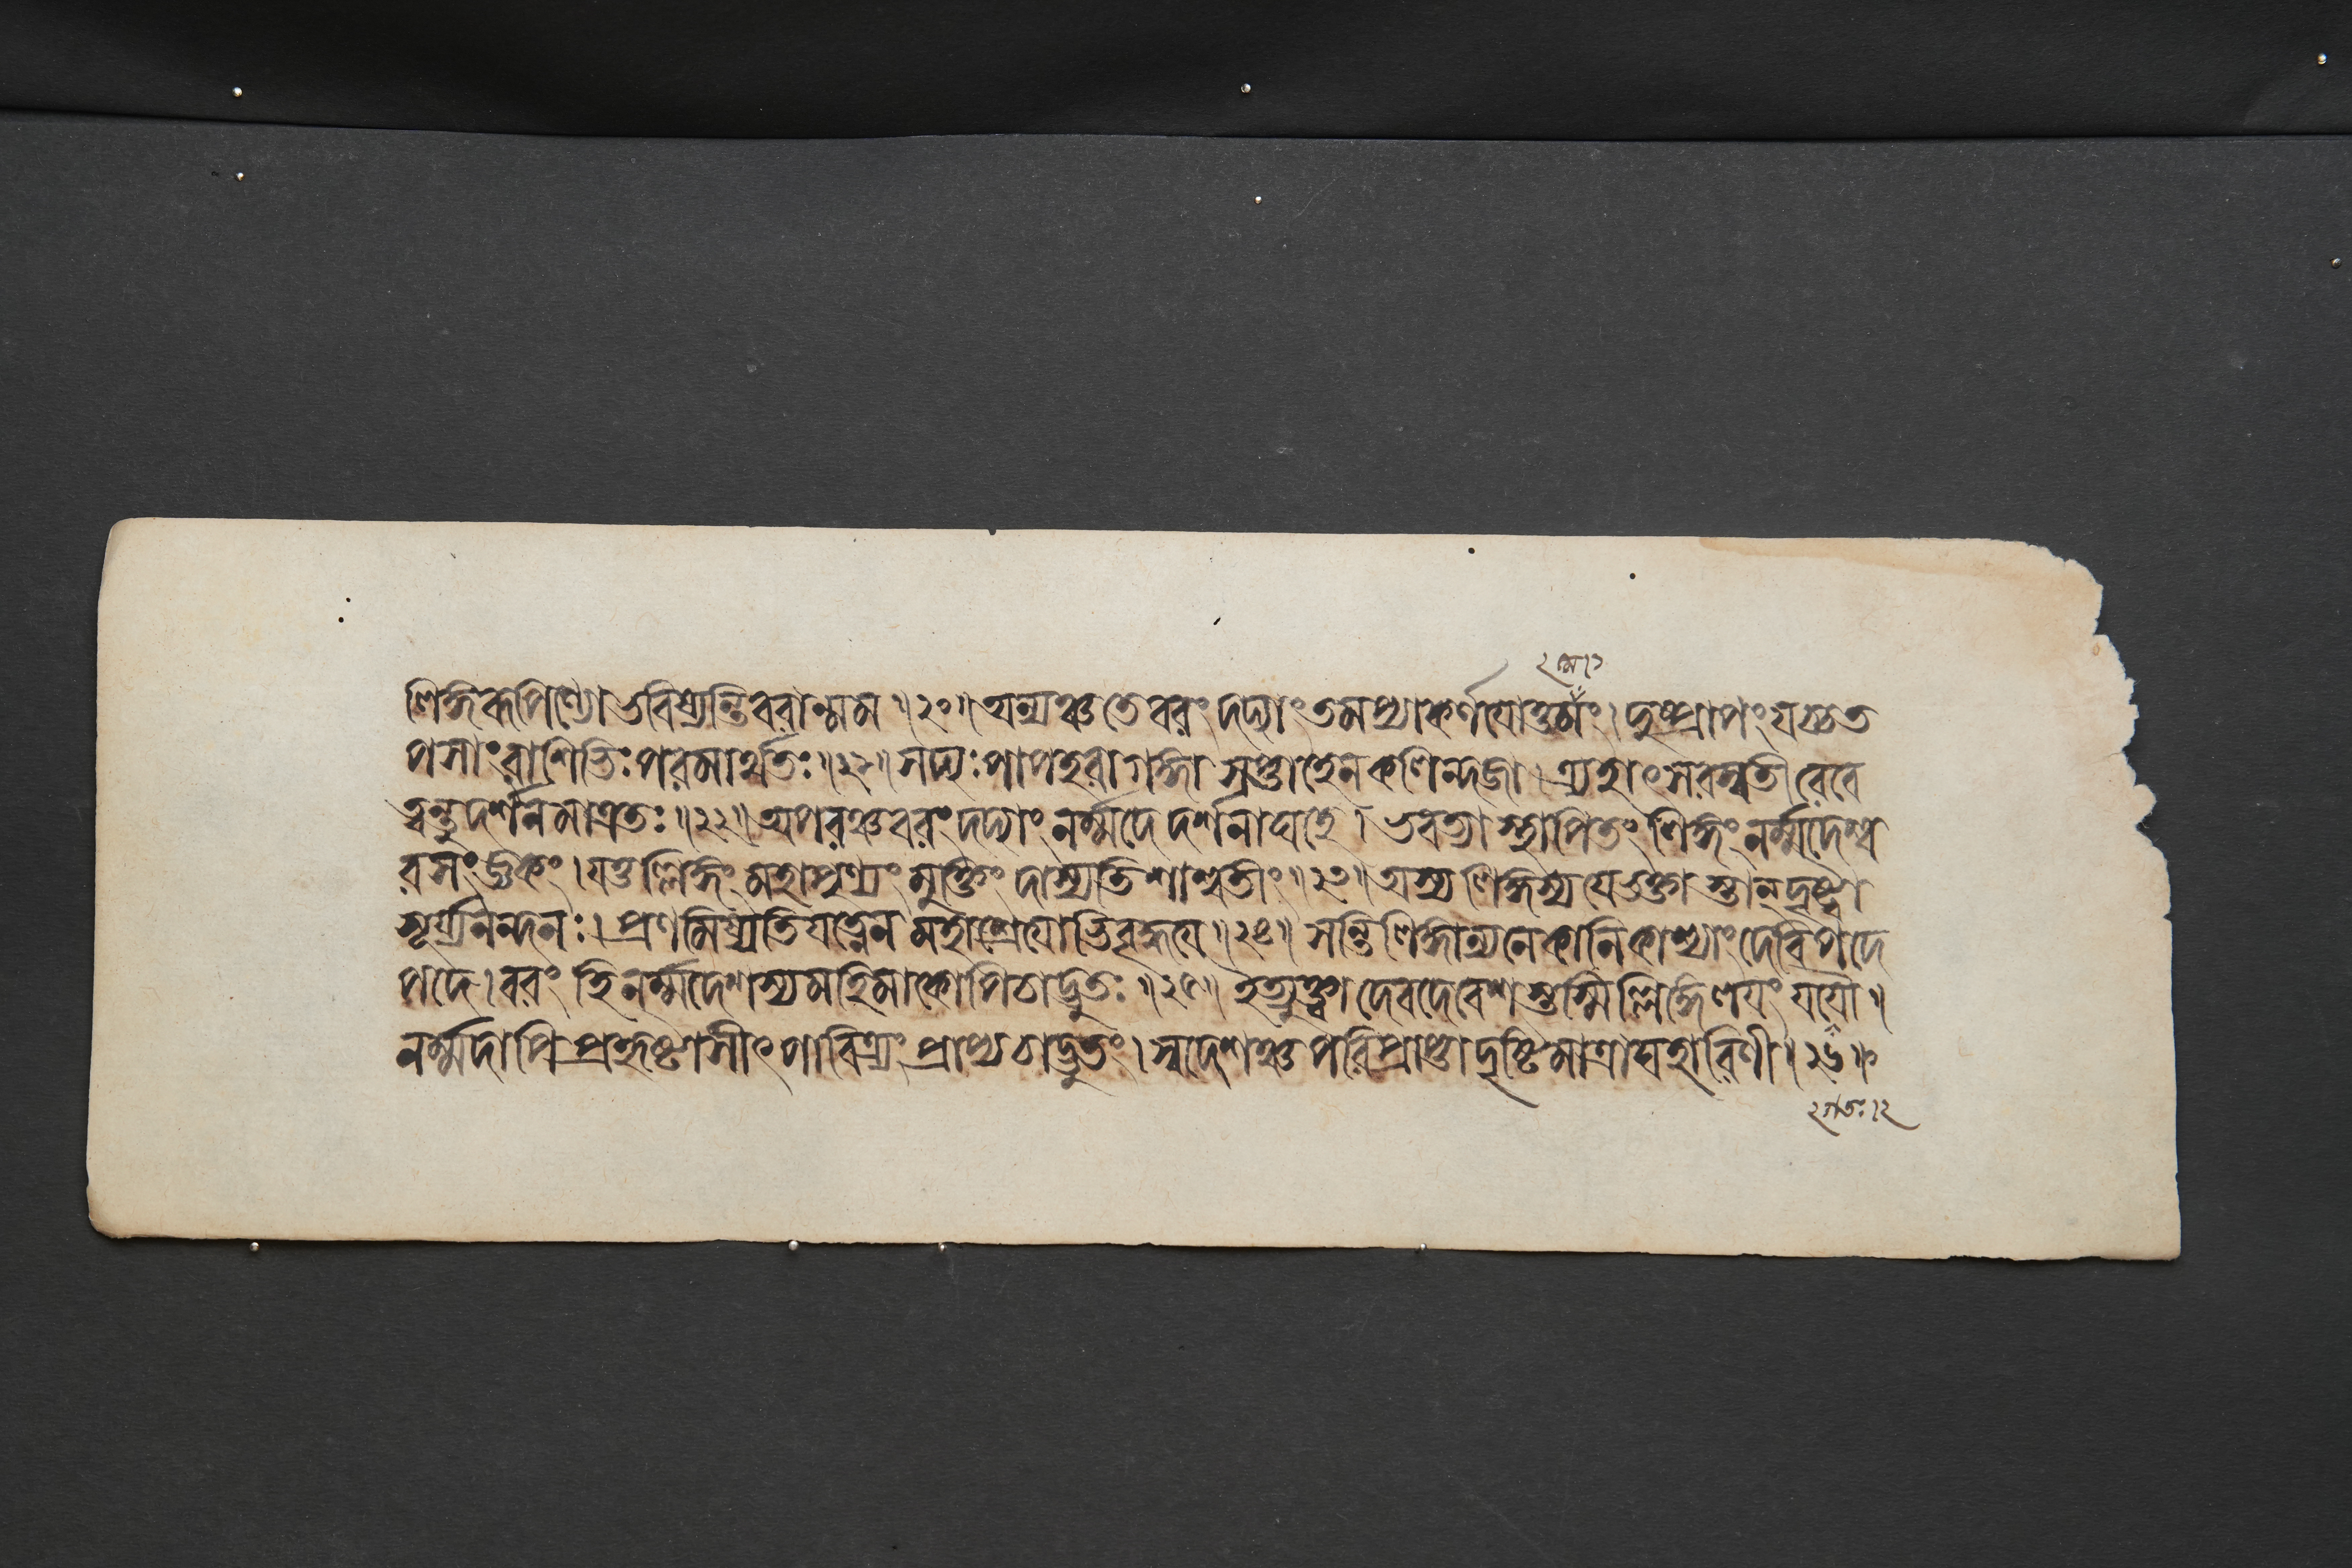 লিঙ্গরূপিণ্যো ভবিষ্যন্তি বরান্মম ॥২০॥ অন্যঞ্চ তে বরং দদ্যাং তমপ্যাকর্ণযোত্তমং। দুষ্প্রাপং যচ্চ ত
পসাং রাশিভিঃ পরমার্থতঃ॥২১॥ সদ্যঃ পাপহরা গঙ্গা সপ্তাহেন কলিন্দজা। ত্র্যহাৎ সরস্বতী রেবে
ত্বন্তু দর্শনমাত্রতঃ॥২২॥ অপরঞ্চ বরং দদ্যাং নর্ম্মদে দর্শনাঘহে। ভবত্যা স্থাপিতং লিঙ্গং নর্ম্মদেশ্ব
রসংজ্ঞকং। যত্তল্লিঙ্গং মহাপুণ্যং মুক্তিং দাস্যতি শাশ্বতীং॥২৩॥ অস্য লিঙ্গস্য যে ভক্তাস্তান্ দৃষ্ট্বা
সূর্য্যনন্দনঃ। প্রণমিষ্যতি যত্নেন মহাশ্রেযোভিবৃদ্ধযে॥২৪॥ সন্তি লিঙ্গান্যনেকানি কাশ্যাং দেবি পদে
পদে। বরং হি নর্ম্মদেশস্য মহিমা কোপি চাদ্ভুতঃ॥২৫॥ ইত্যুক্ত্বা দেবদেবেশস্তস্মিল্লিঙ্গে লযং যযৌ।
নর্ম্মদাপি প্রহৃষ্টাসীৎ পাবিত্র্যং প্রাপ্য চাদ্ভুতং। স্বদেশঞ্চ পরিপ্রাপ্তা দৃষ্টিমাত্রাঘহারিণী॥২৬॥